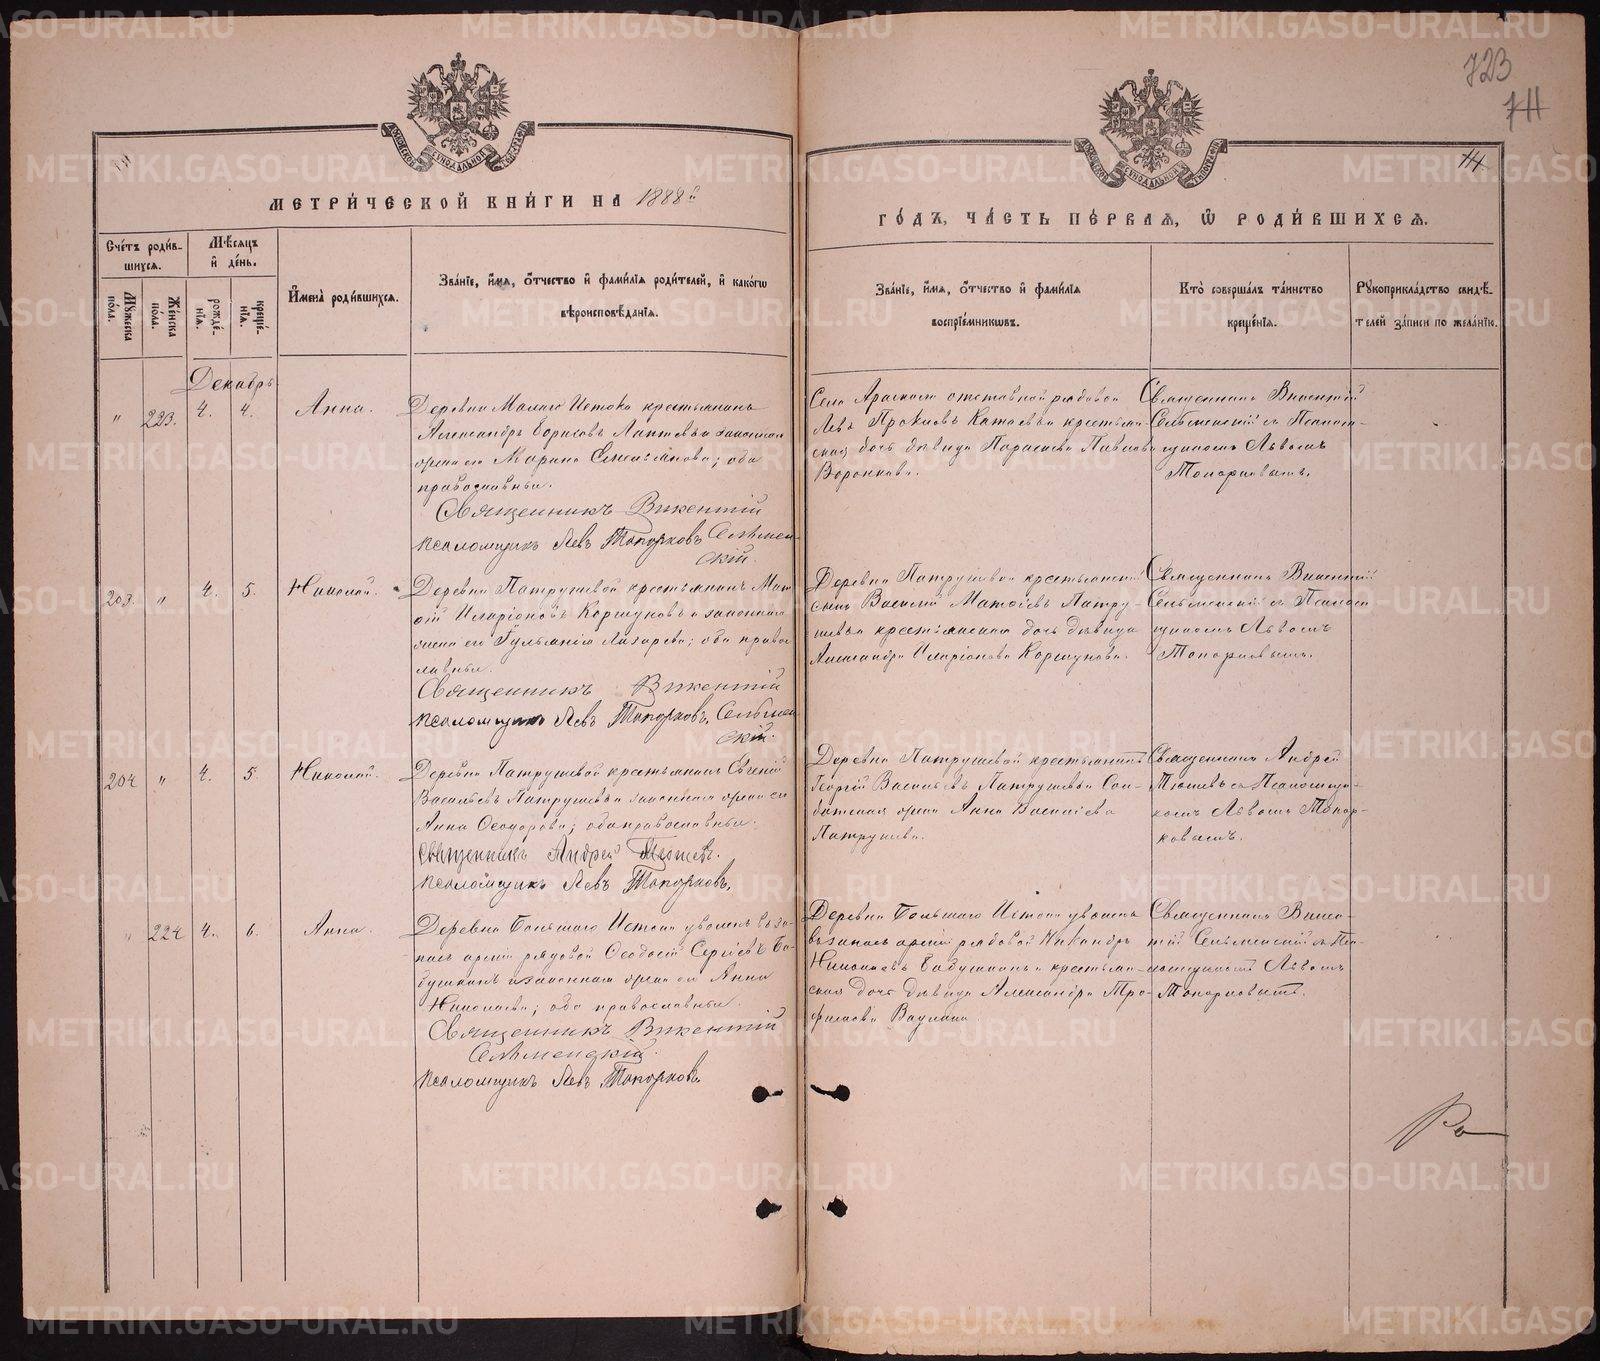 723
711
МЕТРИЧЕСКОЙ КНИГИ НА 1888 г.
ГОДЪ, ЧАСТЬ ПЕРВАЯ, Ѡ РОДИВШИХСЯ.
Счетъ родив-
шихся.
Мѣсяцъ
и день.
Мужеска
пола.
Женска
пола.
рожде-
нія.
креще-
нія.
Имена родившихся.
Званіе, имя, отчество и фамилія родителей, и какогѡ
вѣроисповѣданія.
Званіе, имя, отчество и фамилія
воспріемниковъ.
Кто совершалъ таинство
крещенія.
Рукоприкладство свидѣ-
телей записи по желанію.
Декабрь
" 223. 4. 4. Анна.
Деревни Малаго Истока крестьянинъ
Александръ и законная
жена его Марина; оба
православные.
Священникъ Викентій
псаломщикъ Левъ Топорковъ Сельмен-
скій.
Села отставной рядовой
Левъ и крестьян-
ская дочь дѣвица Параскева Павлова
Воронкова.
Священникъ Викентій
Сельменскій съ Псалом-
щикомъ Львомъ
Топорковымъ.
203. " 4. 5. Николай.
Деревни Патрушевой крестьянинъ Мат-
ѳій Иларіоновъ Коршуновъ и законная
жена его Лазарева; оба право-
славные.
Священникъ Викентій
псаломщикъ Левъ Топорковъ. Сельмен-
скій.
Деревни Патрушевой крестьянскій
сынъ Василій Матѳіевъ Патру-
шевъ и крестьянская дочь дѣвица
Александра Иларіонова Коршунова.
Священникъ Викентій
Сельменскій съ Псалом-
щикомъ Львомъ
Топорковымъ.
204 " 4. 5. Николай.
Деревни Патрушевой крестьянинъ Евгеній
Васильевъ Патрушевъ и законная жена его
Анна Ѳеодорова; оба православные.
Священникъ Андрей
псаломщикъ Левъ Топорковъ.
Деревни Патрушевой крестьянинъ
Георгій Васильевъ Патрушевъ и Сол-
датская жена Анна Васильева
Патрушева.
Священникъ Андрей
съ Псаломщи-
комъ Львомъ Топор-
ковымъ.
" 224 4. 6. Анна.
Деревни Большаго Истока уволен. въ за-
пасъ арміи рядовой Ѳеодосій Сергіевъ Ба-
бушкинъ и законная жена его Анна
Николаева; оба православные.
Священникъ Викентій
Сельменскій.
псаломщикъ Левъ Топорковъ.
Деревни Большаго Истока уволен.
въ запасъ арміи рядовой Никандръ
Николаевъ Бабушкинъ и крестьян-
ская дочь дѣвица Александра Тро-
фимова Ваулина.
Священникъ Викен-
тій Сельменскій съ Пса-
ломщикомъ Львомъ
Топорковымъ.
METRIKI.GASO-URAL.RU